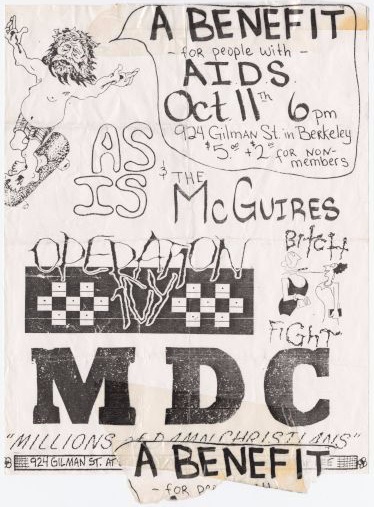 A BENEFIT
- for people with -
AIDS
Oct. 11th 6pm
924 Gilman St. in Berkeley
$5.00 + $2.00 FOR NON-
members
AS
IS
& THE
McGUIRES
OPERATION
IVY
BITCH
FIGHT
MDC
"MILLIONS OF DAMN CHRISTIANS"
924 GILMAN ST. AT
A BENEFIT
- for